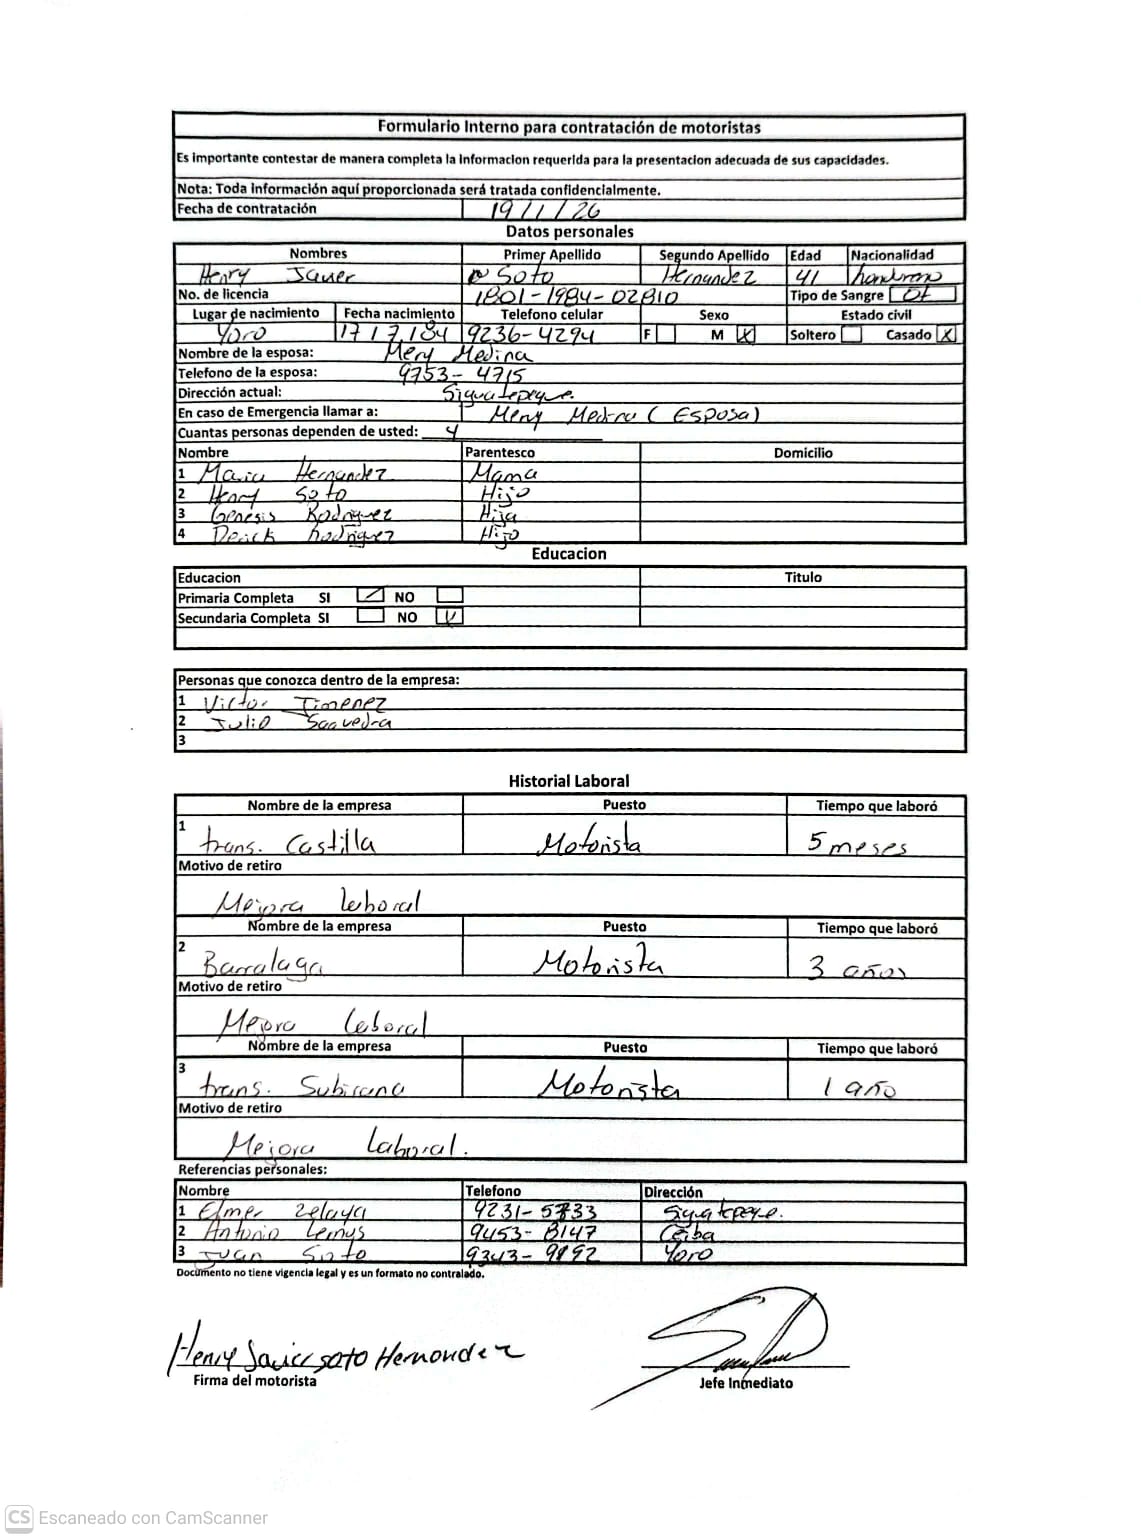 Formulario Interno para contratación de motoristas
Es importante contestar de manera completa la Informacion requerida para la presentacion adecuada de sus capacidades.
Nota: Toda Información aquí proporcionada será tratada confidencialmente.
Fecha de contratación 19/1/26
Datos personales
Nombres Primer Apellido Segundo Apellido Edad Nacionalidad
Henry Javier Soto Hernandez 41
No. de licencia 1801-1984-02810 Tipo de Sangre O+
Lugar de nacimiento Fecha nacimiento Telefono celular Sexo Estado civil
Yoro 17/7/84 9236-4294 F M X Soltero Casado X
Nombre de la esposa: Mery Medina
Telefono de la esposa: 9753-4715
Dirección actual: Siguatepeque.
En caso de Emergencia llamar a: Mery Medina (Esposa)
Cuantas personas dependen de usted: 4
Nombre Parentesco Domicilio
1 Maria Hernandez Mama
2 Henry Soto Hijo
3 Genesis Rodriguez Hija
4 Derick Rodriguez Hijo
Educacion
Educacion Titulo
Primaria Completa SI NO
Secundaria Completa SI NO
Personas que conozca dentro de la empresa:
1 Victor Jimenez
2 Julio Saavedra
3
Historial Laboral
Nombre de la empresa Puesto Tiempo que laboró
1 trans. Castilla Motorista 5 meses
Motivo de retiro
Mejora laboral
Nombre de la empresa Puesto Tiempo que laboró
2 Barralaga Motorista 3 años
Motivo de retiro
Mejora laboral
Nombre de la empresa Puesto Tiempo que laboró
3 trans. Subirana Motorista 1 año
Motivo de retiro
Mejora laboral.
Referencias personales:
Nombre Telefono Dirección
1 Elmer Zelaya Siguatepeque.
2 Antonio Lemus 9453-8147 Ceiba
3 Juan Soto Yoro
Documento no tiene vigencia legal y es un formato no contralado.
Henry Javier soto Hernandez
Firma del motorista Jefe Inmediato
CS Escaneado con CamScanner